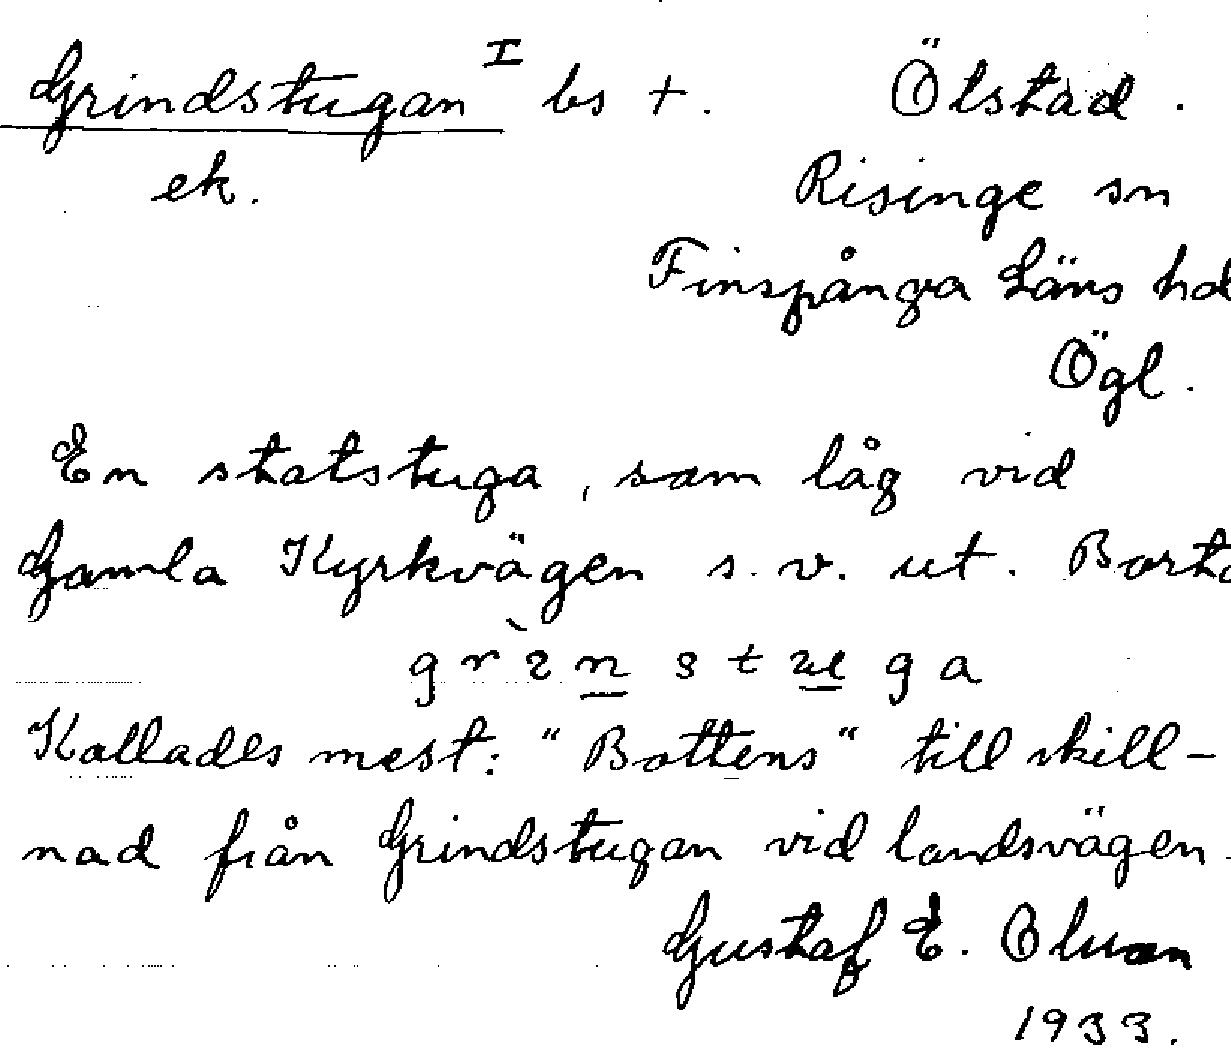 Grindstugan I bs +. Ölstad.
ek. Risinge sn
Finspånga Läns hd
Ögl.
En statstuga, som låg vid
Gamla Kyrkvägen s.v. ut.
g r ì n s t u g a
Kallades mest: "Bottens" till skill-
nad från Grindstugan vid landsvägen.
Gustaf E.
1933.